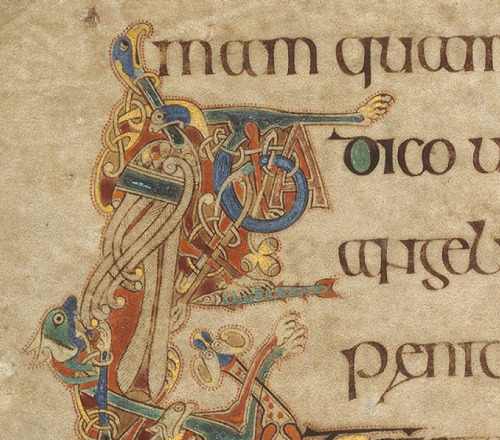 mam quam
ITA dico u
angel
penit